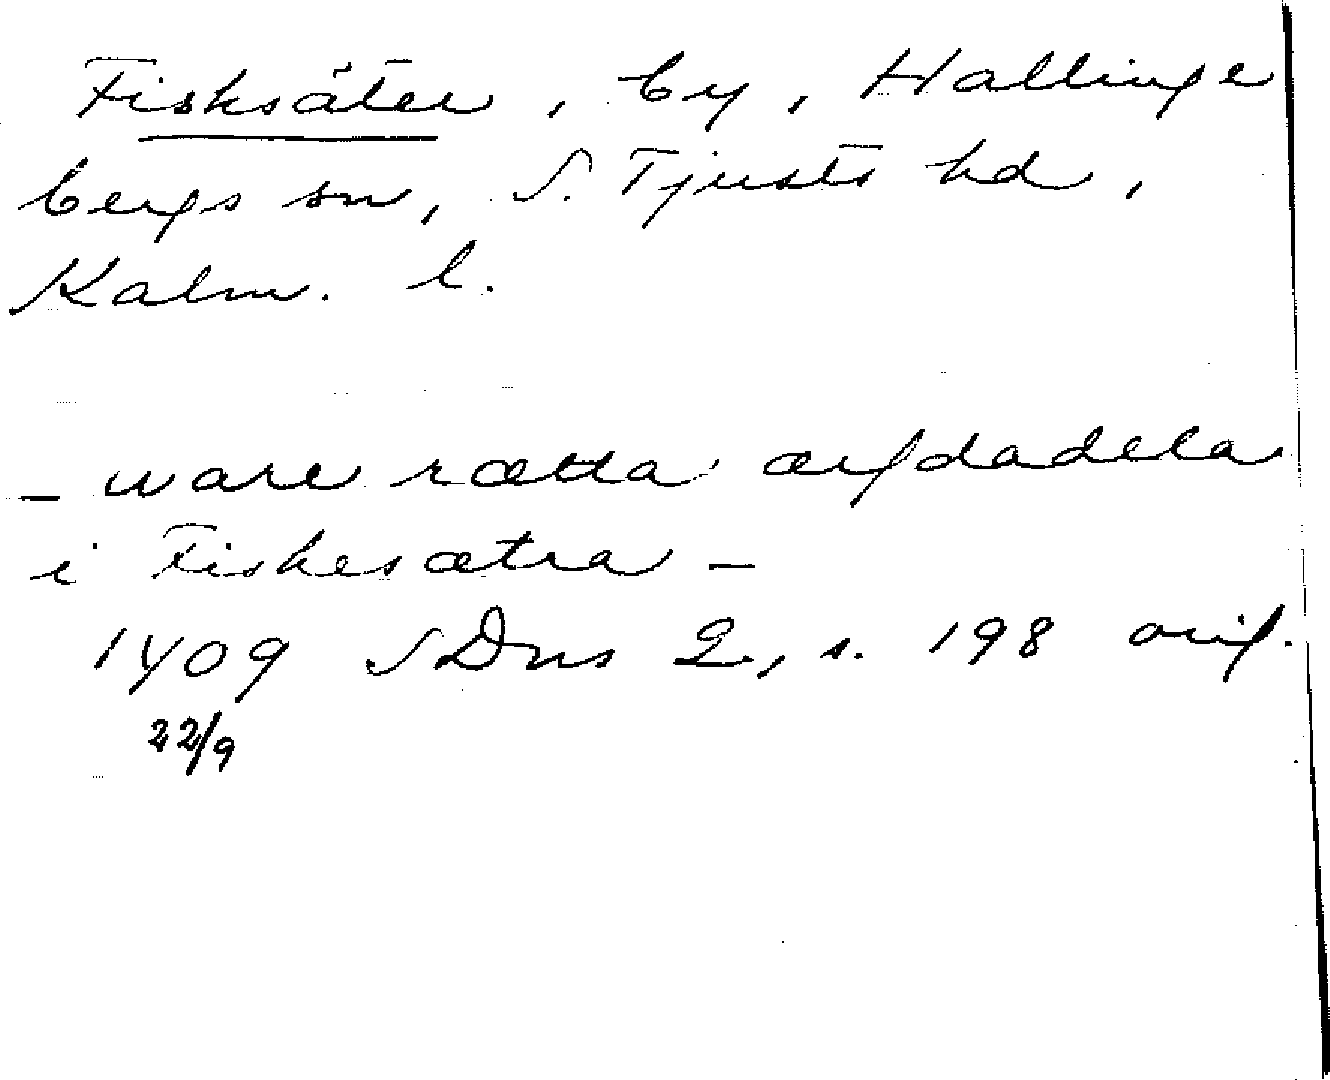 Fisksäter, by, Hallinge
bergs sn, S. Tjusts hd,
Kalm. l.
– ware rætta ærfdadela
i Fiskesætra –
1409 SDns 2, s. 198 orig.
22/9